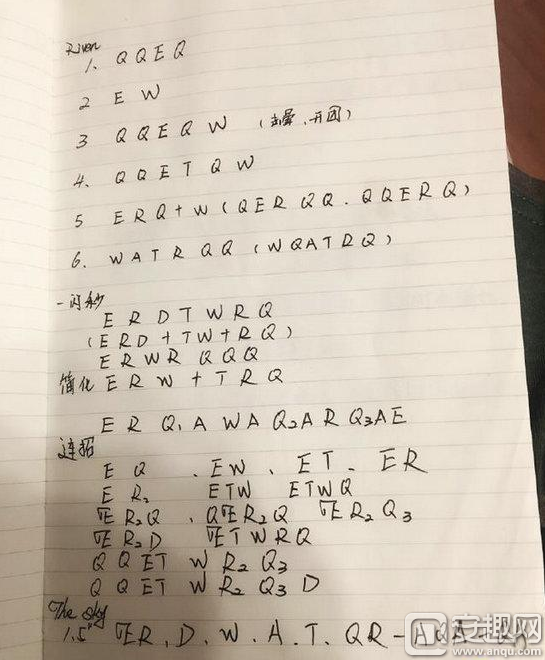 Riven
1、 Q Q E Q
2 E W
3 Q Q E Q W (击晕、开团)
4、 Q Q E T Q W
5 E R Q + W (Q E R Q Q . Q Q E R Q)
6. W A T R Q Q (W Q A T R Q)
一闪秒
E R D T W R Q
(E R D + T W + R Q)
E R W R Q Q Q
简化 E R W + T R Q
E R Q₁ A W A Q₂ A R Q₃ A E
连招
E Q 、 E W 、 E T 、 E R
E R₂ E T W E T W Q
E R₂ Q 、 Q E R₂ Q E R₂ Q₃
E R₂ D E T W R Q
Q Q E T W R₂ Q₃
Q Q E T W R₂ Q₃ D
The shy
1.5" E R . D . W . A . T . Q R -
安趣网
www.anqu.com